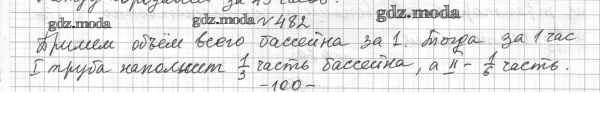 gdz.moda
gdz.moda №482
gdz.moda
Примем объём всего бассейна за 1. Тогда за 1 час
I труба наполнит 1/3 часть бассейна, а II - 1/6 часть.
-100-